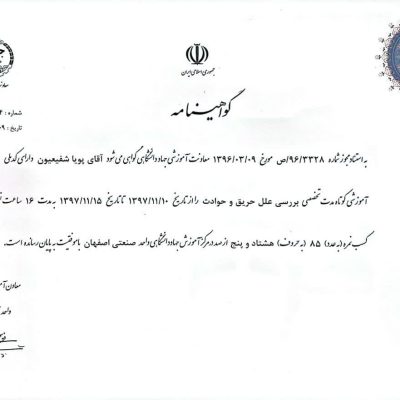 جمهوری اسلامی ایران
گواهینامه
شماره :
تاریخ :
به استناد مجوز شماره ۹۶/۳۳۲۸/ص مورخ ۱۳۹۶/۰۳/۰۹ معاونت آموزشی جهاددانشگاهی گواهی می شود آقای پویا شفیعیون دارای کدملی
آموزشی کوتاه مدت تخصصی بررسی علل حریق و حوادث را از تاریخ ۱۳۹۷/۱۱/۱۰ تا تاریخ ۱۳۹۷/۱۱/۱۵ به مدت ۱۶ ساعت
کسب نمره (به عدد) ۸۵ (به حروف) هشتاد و پنج از صد در مرکز آموزش جهاددانشگاهی واحد صنعتی اصفهان با موفقیت به پایان رسانده است.
معاون
واحد